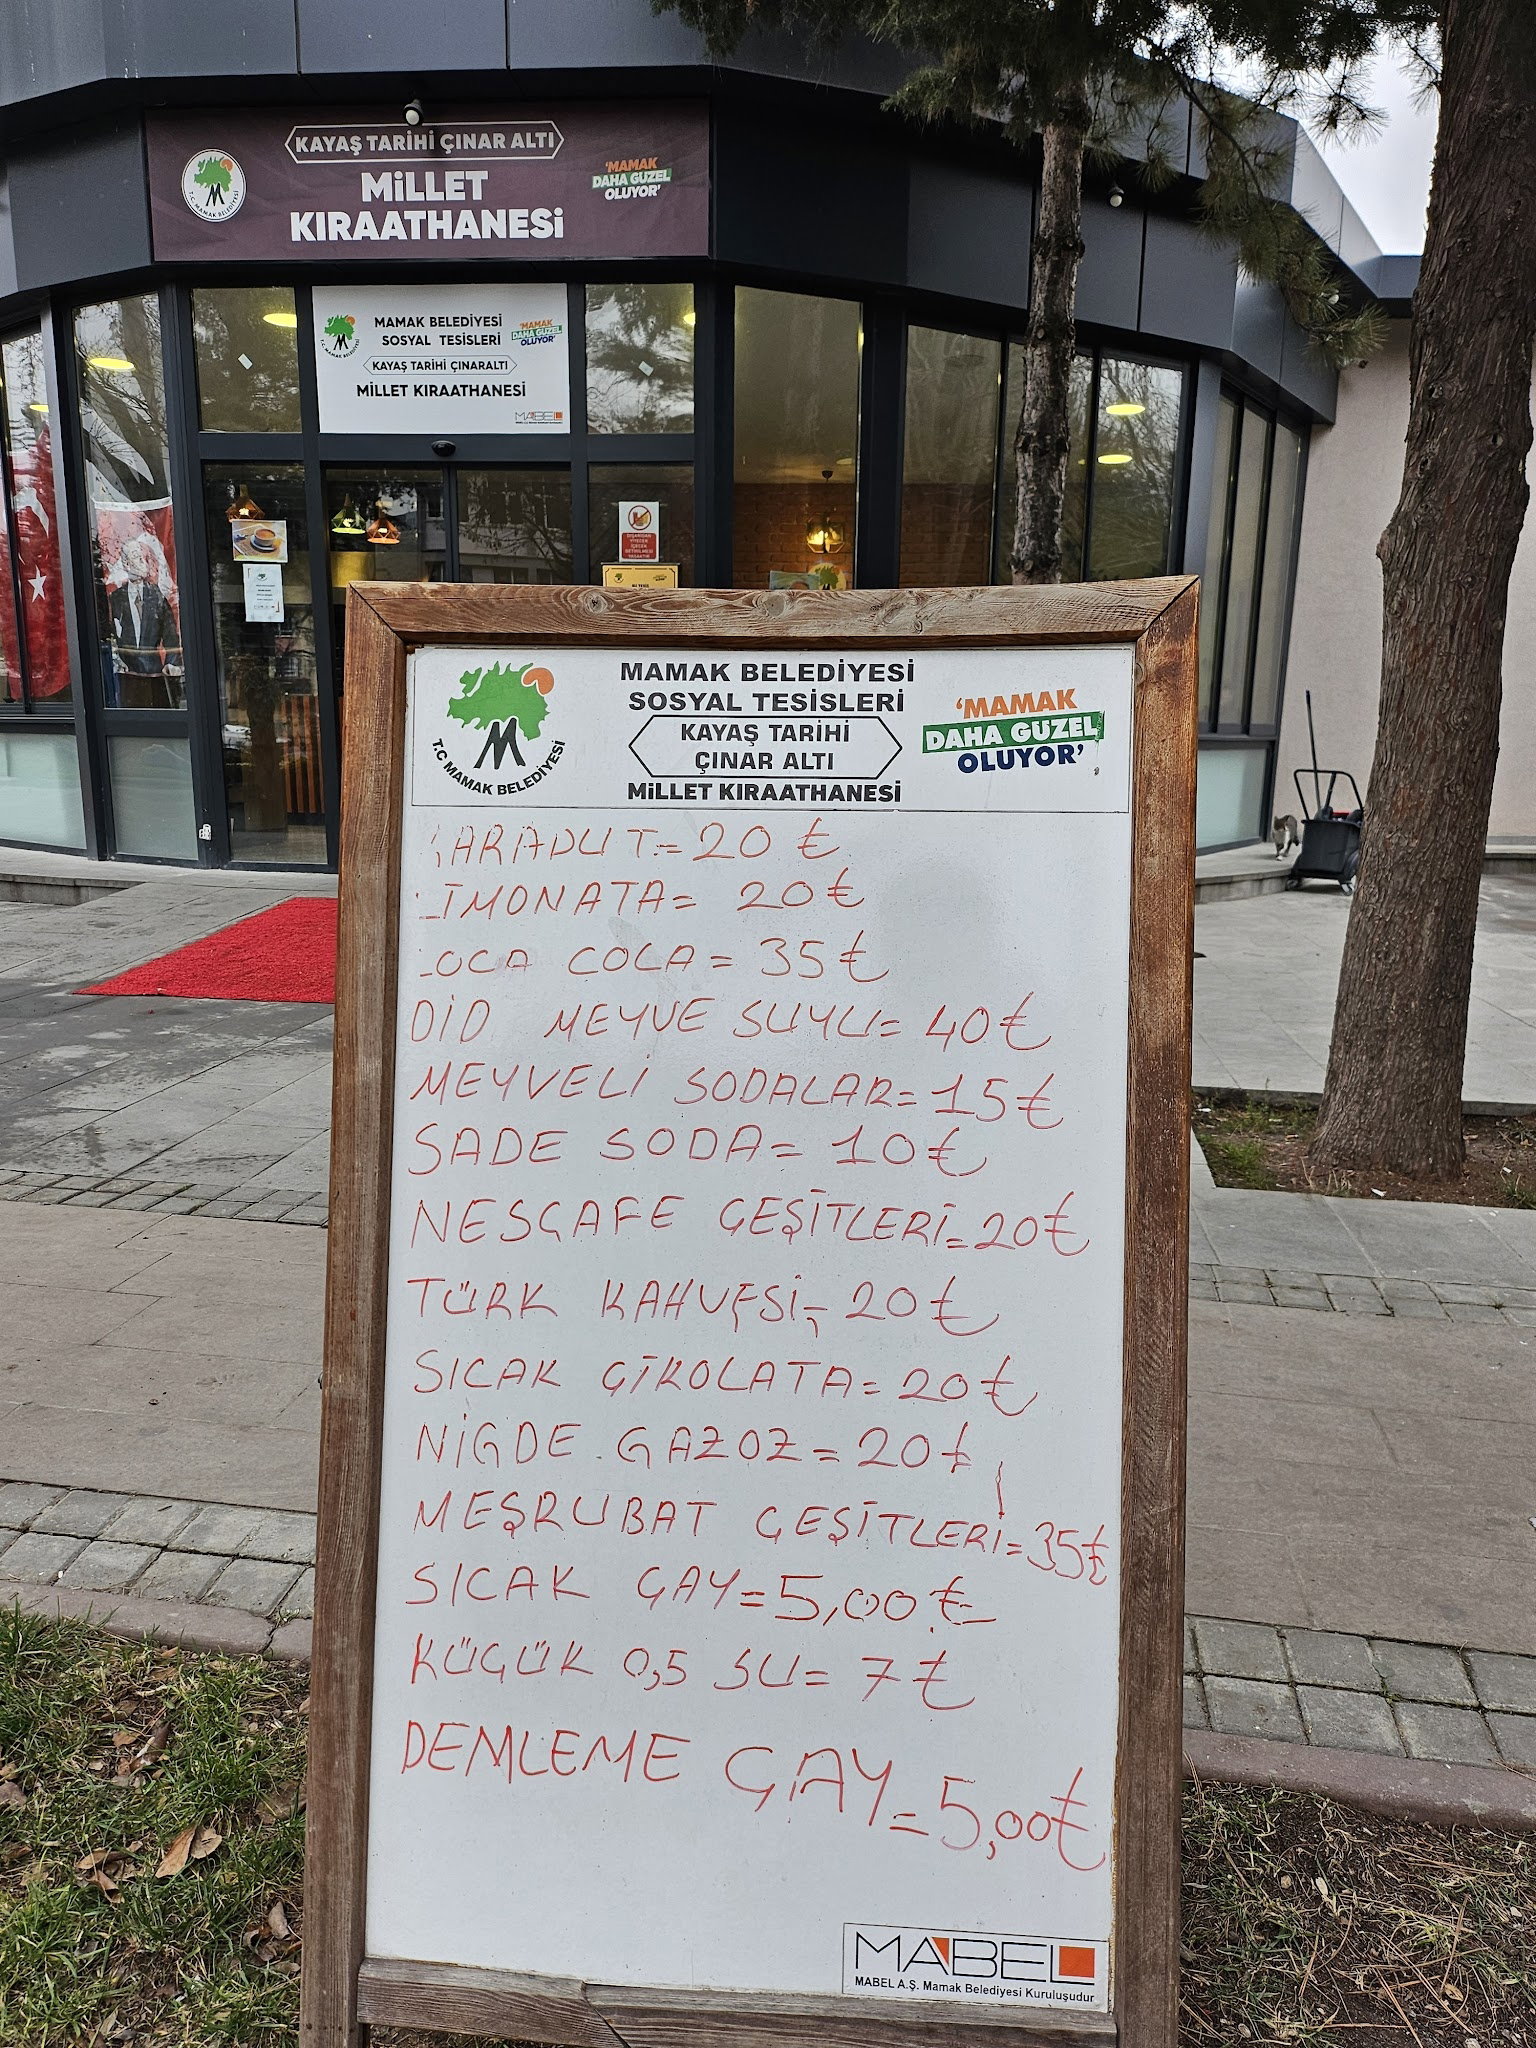 KAYAŞ TARİHİ ÇINAR ALTI
MİLLET
KIRAATHANESİ
T.C. MAMAK BELEDİYESİ
'MAMAK
DAHA GÜZEL
OLUYOR'
MAMAK BELEDİYESİ
SOSYAL TESİSLERİ
KAYAŞ TARİHİ ÇINARALTI
MİLLET KIRAATHANESİ
T.C. MAMAK BELEDİYESİ
'MAMAK
DAHA GÜZEL
OLUYOR'
MABEL
DIŞARIDAN
YİYECEK
İÇECEK
GETİRİLMESİ
YASAKTIR
MAMAK BELEDİYESİ
SOSYAL TESİSLERİ
KAYAŞ TARİHİ
ÇINAR ALTI
MİLLET KIRAATHANESİ
T.C MAMAK BELEDİYESİ
'MAMAK
DAHA GÜZEL
OLUYOR'
KARADUT = 20 ₺
LİMONATA = 20 ₺
COCA COLA = 35 ₺
DİD MEYVE SUYU = 40 ₺
MEYVELİ SODALAR = 15 ₺
SADE SODA = 10 ₺
NESCAFE ÇEŞİTLERİ = 20 ₺
TÜRK KAHVESİ = 20 ₺
SICAK ÇİKOLATA = 20 ₺
NİGDE GAZOZ = 20 ₺
MEŞRUBAT ÇEŞİTLERİ = 35 ₺
SICAK ÇAY = 5,00 ₺
KÜÇÜK 0,5 SU = 7 ₺
DEMLEME ÇAY = 5,00 ₺
MABEL
MABEL A.Ş. Mamak Belediyesi Kuruluşudur